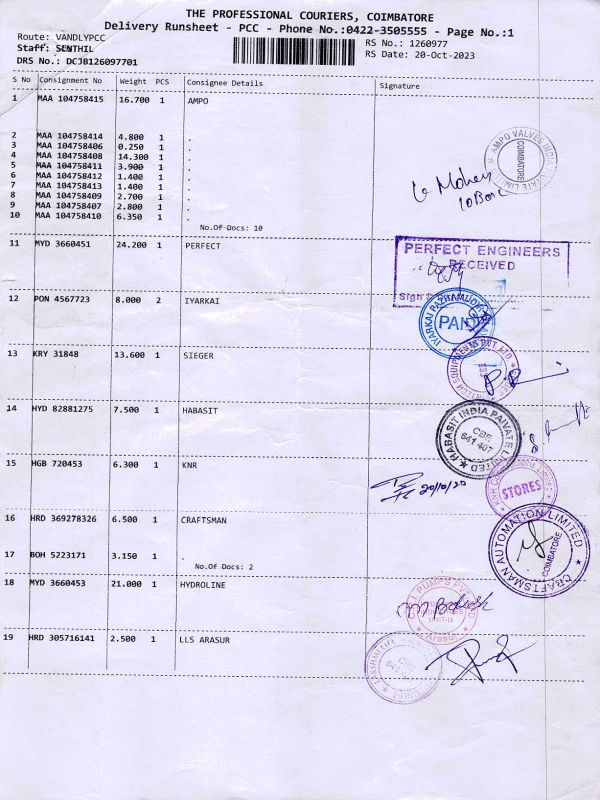 THE PROFESSIONAL COURIERS, COIMBATORE
Delivery Runsheet - PCC - Phone No.:0422-3505555 - Page No.:1
Route: VANDLYPCC
RS No.: 1260977
Staff: SENTHIL
RS Date: 20-Oct-2023
DRS No.: DCJB126097701
S No Consignment No Weight PCS Consignee Details Signature
1 MAA 104758415 16.700 1 AMPO
2 MAA 104758414 4.800 1 .
3 MAA 104758406 0.250 1 .
4 MAA 104758408 14.300 1 .
5 MAA 104758411 3.900 1 .
6 MAA 104758412 1.400 1 .
7 MAA 104758413 1.400 1 .
8 MAA 104758409 2.700 1 .
9 MAA 104758407 2.800 1 .
10 MAA 104758410 6.350 1 .
No.Of Docs: 10
AMPO VALVES INDIA PRIVATE LIMITED
COIMBATORE
11 MYD 3660451 24.200 1 PERFECT
PERFECT ENGINEERS
RECEIVED
Sign
12 PON 4567723 8.000 2 IYARKAI
IYARKAI PAZHAMUDIR
PAID
13 KRY 31848 13.600 1 SIEGER
EQUIPMENTS PVT LTD
14 HYD 82881275 7.500 1 HABASIT
HABASIT INDIA PAIVATE LIMITED
CBE
641 407
15 HGB 720453 6.300 1 KNR
20/10/20
STORES
16 HRD 369278326 6.500 1 CRAFTSMAN
CRAFTSMAN AUTOMATION LIMITED
COIMBATORE
17 BOH 5223171 3.150 1 .
No.Of Docs: 2
18 MYD 3660453 21.000 1 HYDROLINE
UNIT-II
19 HRD 305716141 2.500 1 LLS ARASUR
CBE